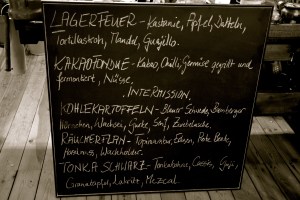 LAGERFEUER - Kastanie, Apfel, Datteln,
Tortillastroh, Mandel, Guajillo.
KAKAOFONDUE - Kakao, Chilli, Gemüse gegrillt und
fermentiert, Nüsse.
INTERMISSION.
KOHLEKARTOFFELN - Blauer Schwede, Bamberger
Hörnchen, Wachtelei, Gurke, Senf, Zwiebelasche
RÄUCHERPLAN - Topinambur, Rote Beete,
Wacholder.
TONKA SCHWARZ - Tonkabohne, Cassis, Goji,
Granatapfel, Lakritz, Mezcal.